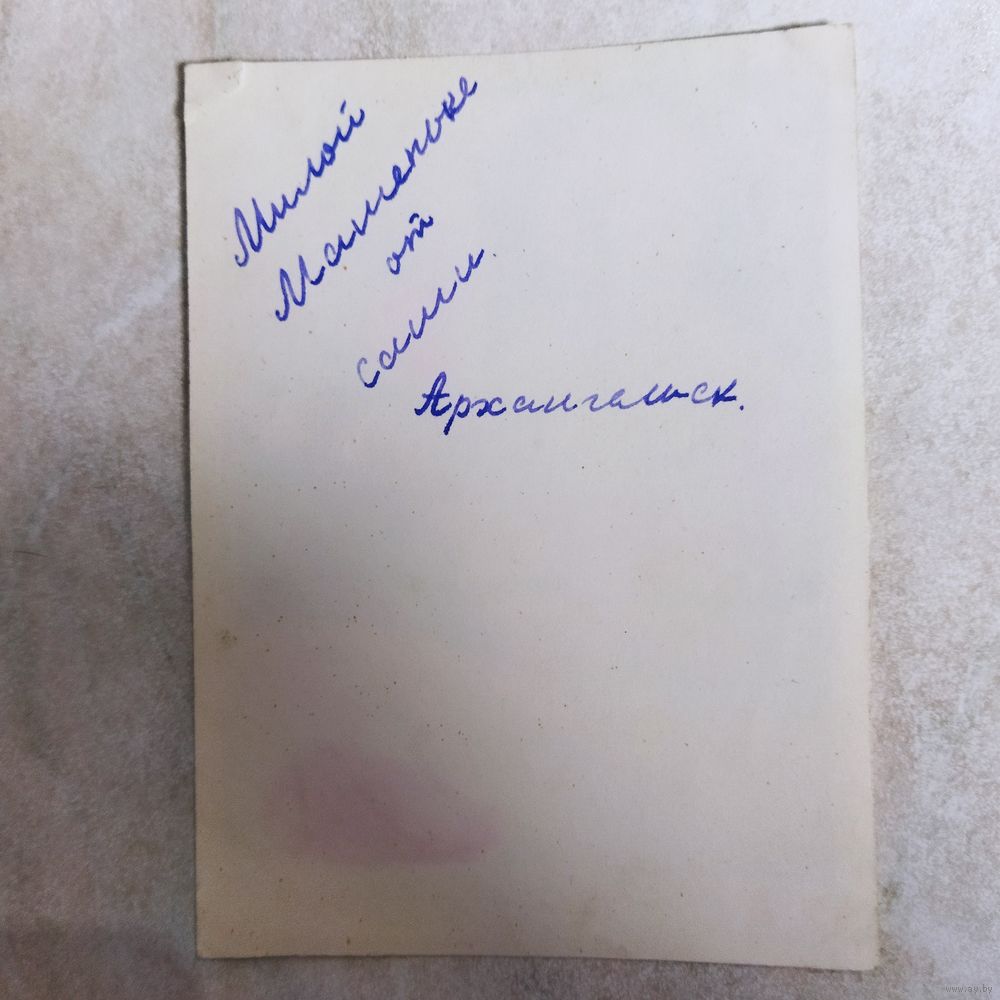 Милой
Машеньке
от
саши.
Архангельск.
www.ay.by